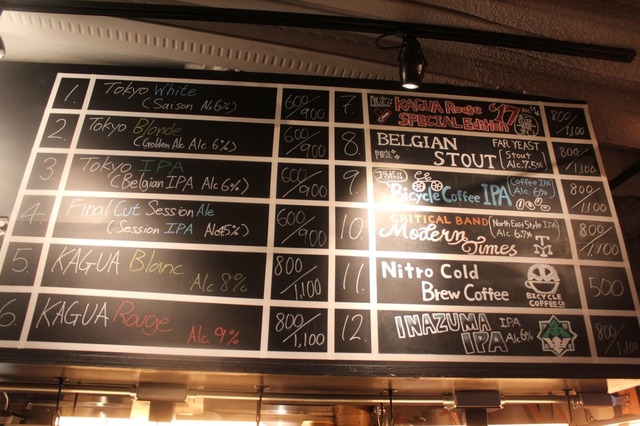 1. Tokyo White
(Saison Alc 6%)
600/900
2. Tokyo Blonde
(Golden Ale Alc 6%)
600/900
3. Tokyo IPA
(Belgian IPA Alc 6%)
600/900
4. Final Cut Session Ale
(Session IPA Alc 4.5%)
600/900
5. KAGUA Blanc
Alc 8%
800/1,100
6. KAGUA Rouge
Alc 9%
800/1,100
7. KAGUA Rouge '17
SPECIAL Edition
800/1,100
8. BELGIAN
STOUT
FAR YEAST
Stout
Alc. 7.5%
800/1,100
9. Bicycle Coffee IPA
Coffee IPA
Alc. 6%
800/1,100
10. CRITICAL BAND
Modern Times
North East Style IPA
Alc. 6.7%
800/1,100
11. Nitro Cold
Brew Coffee
BICYCLE
COFFEE CO
500
12. INAZUMA
IPA
IPA
Alc 6%
800/1,100